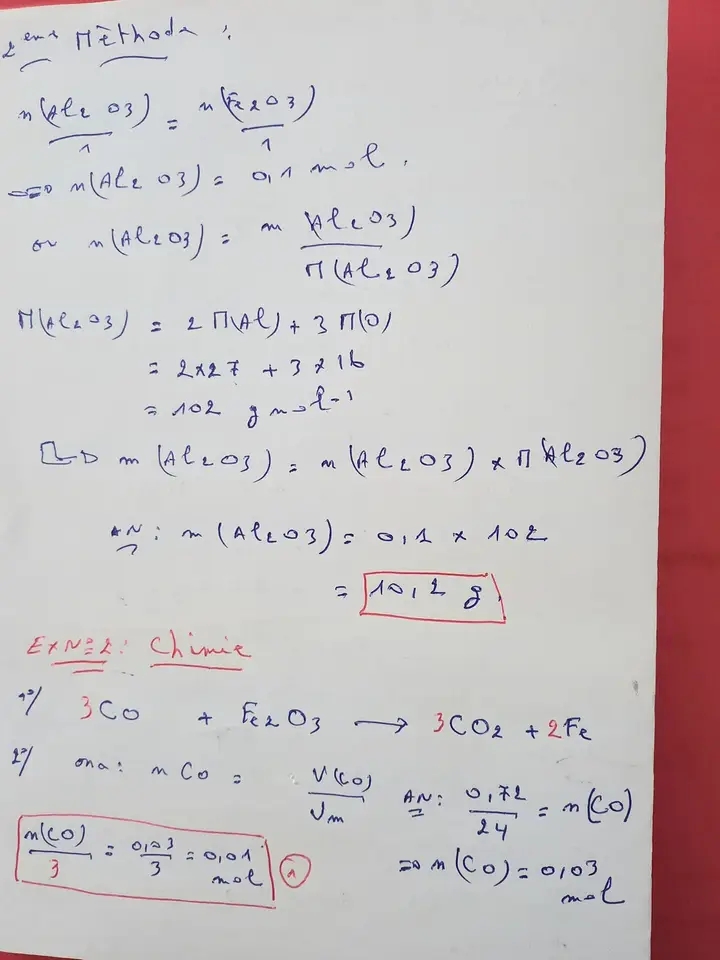 2ème Méthode :
n(Al2O3)/1 = n(Fe2O3)/1
==> n(Al2O3) = 0,1 mol.
or n(Al2O3) = m(Al2O3)/M(Al2O3)
M(Al2O3) = 2 M(Al) + 3 M(O)
= 2×27 + 3×16
= 102 g mol-1
m(Al2O3) = n(Al2O3) × M(Al2O3)
AN : m(Al2O3) = 0,1 × 102
= 10,2 g.
Ex N°2 : Chimie
1°/ 3CO + Fe2O3 → 3CO2 + 2Fe
2°/ ona : nCo = V(CO)/Vm AN : 0,72/24 = n(CO)
=> n(CO) = 0,03 mol
n(CO)/3 = 0,03/3 = 0,01 mol 1